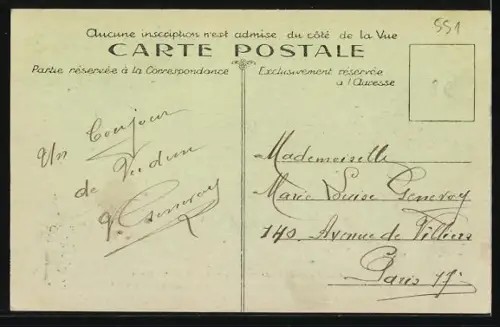 551
Aucune inscription n'est admise du côté de la Vue
CARTE POSTALE
Partie réservée à la Correspondance
Exclusivement réservée
à l'Adresse
Un Bonjour
de Verdun
Genevoy
Mademoiselle
Marie Louise Genevoy
140 Avenue de Villiers
Paris 17